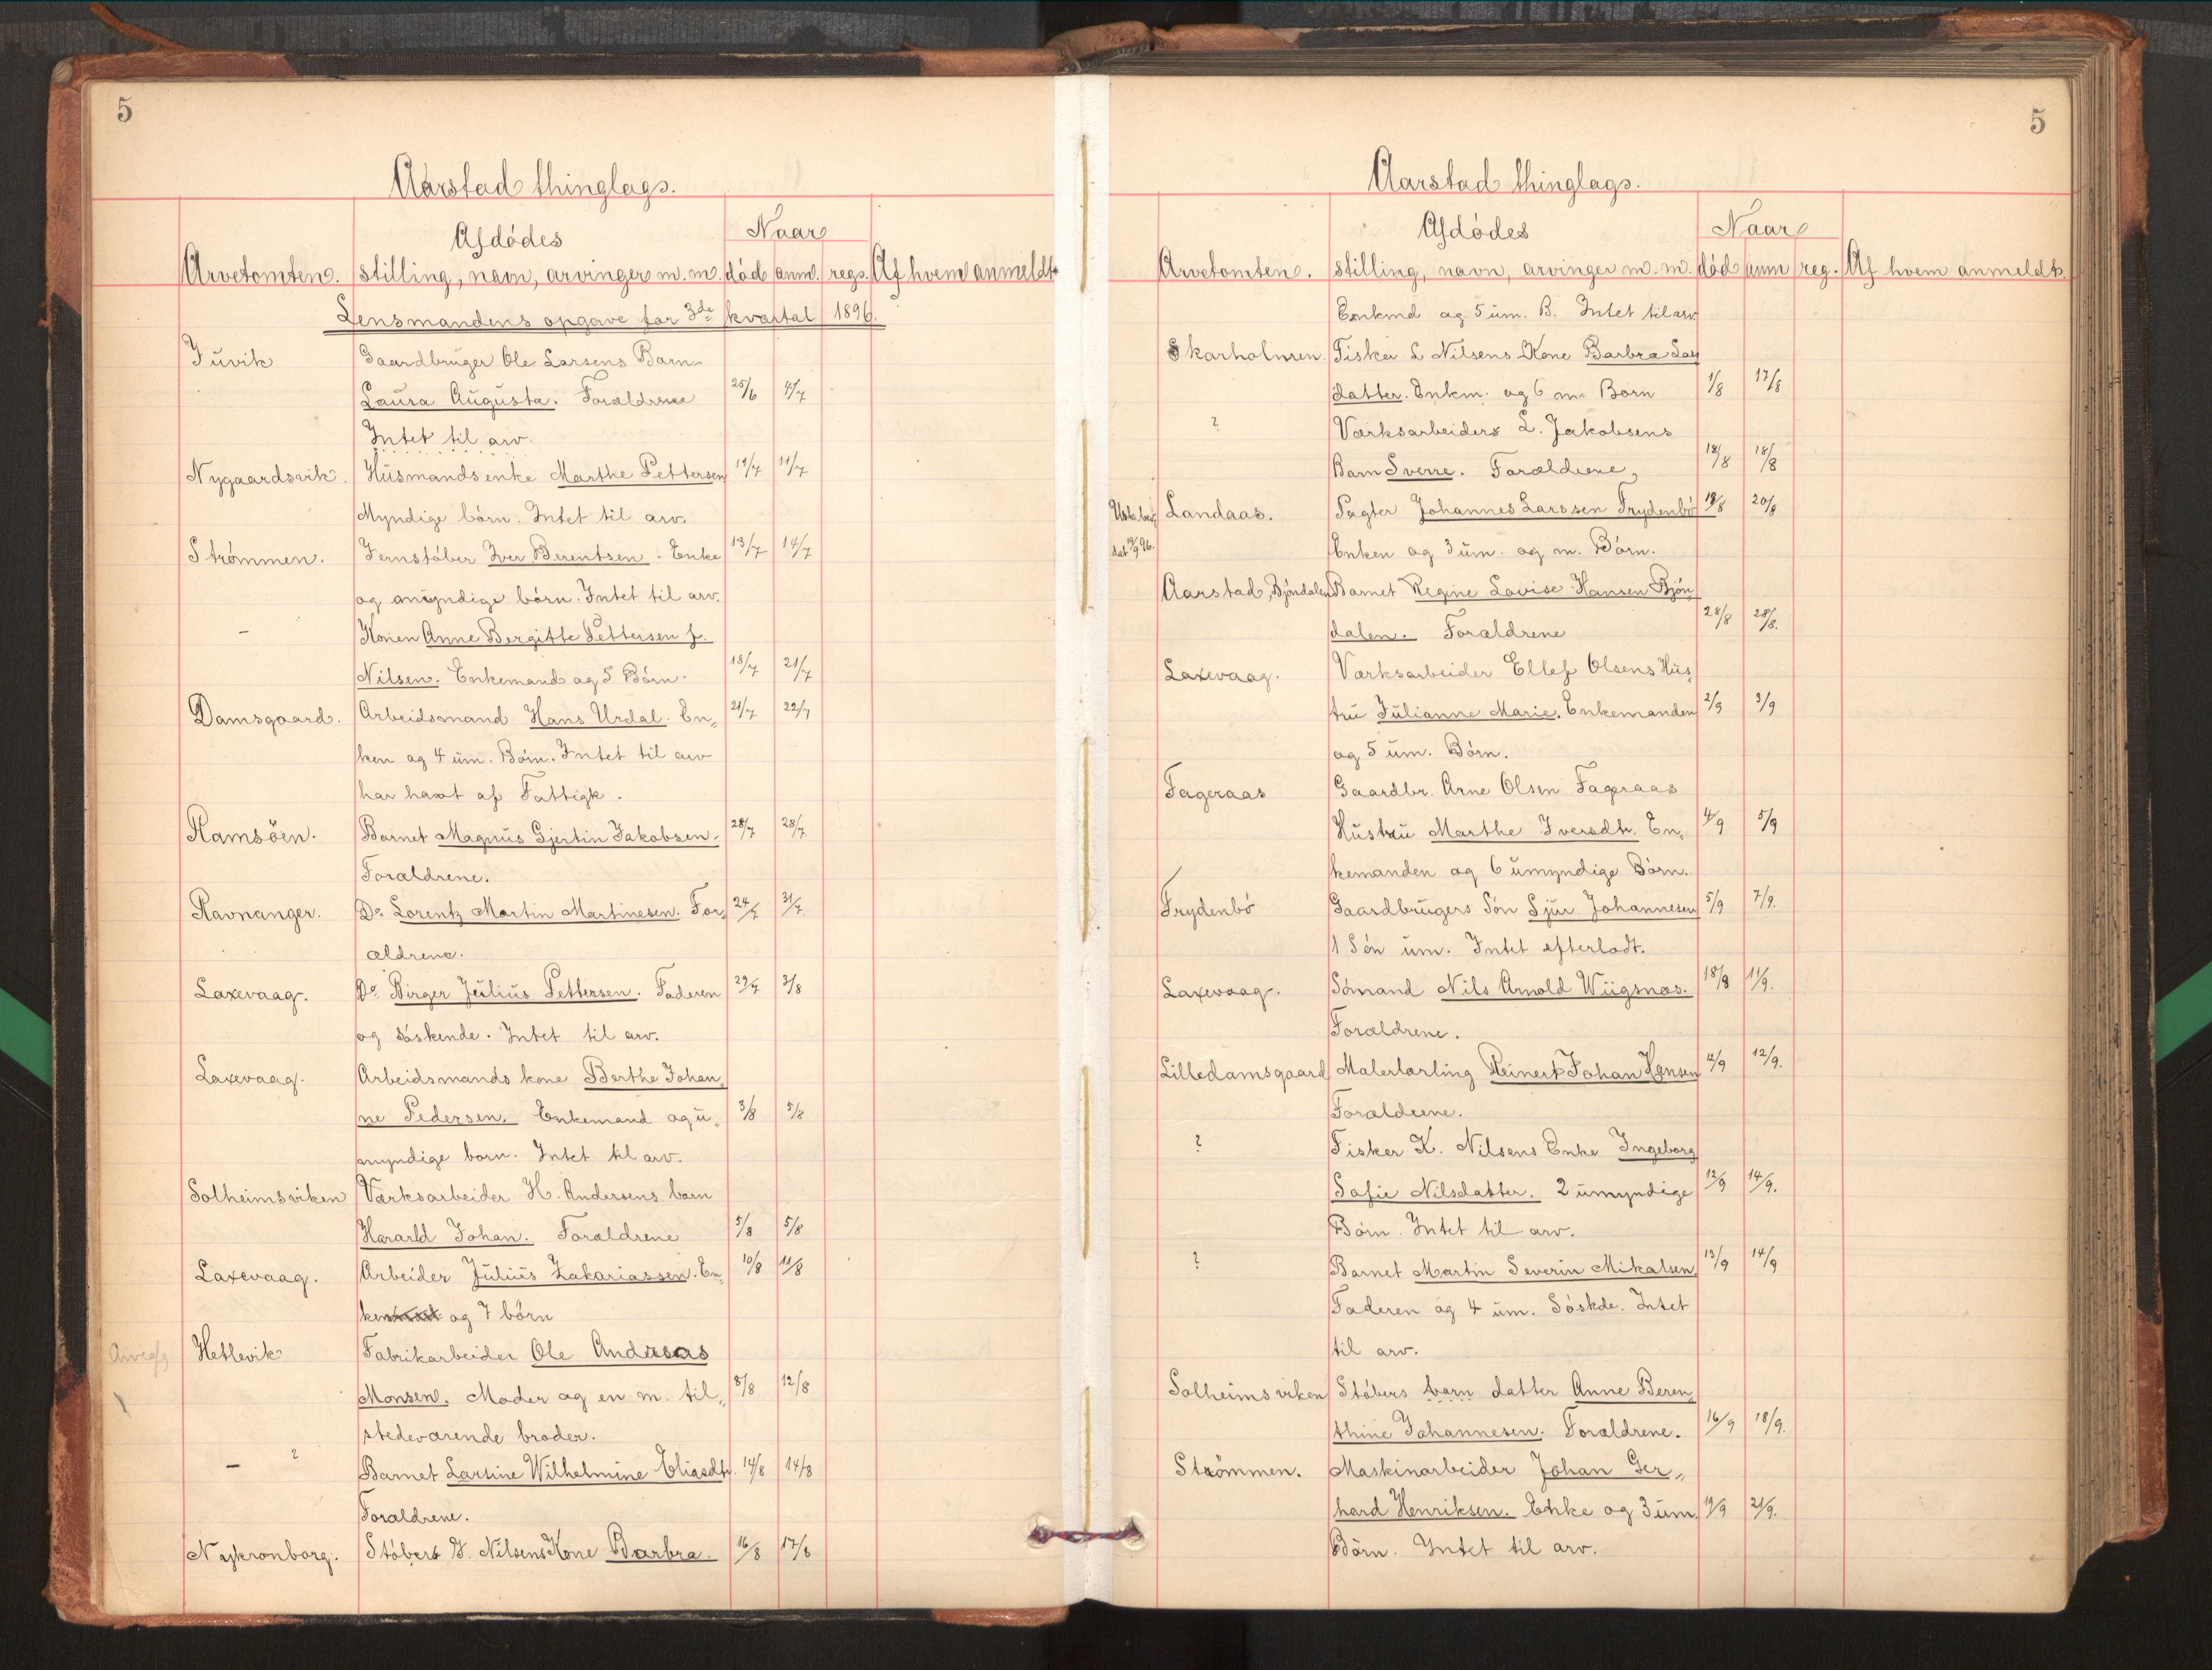 5
Aarstad thinglags.
Afdödes
Naar
Arvetomten. stilling, navn, arvinger m. m. död anm. regs. Af hvem anmeldt
Lensmandens opgave for 3de kvartal 1896.
Juvik Gaardbruger Ole Larsens Barn
Laura Augusta. Forældrene 25/6 4/7
Intet til arv.
Nygaardsvik. Husmandsenke Marthe Pettersen 11/7 11/7
Myndige börn. Intet til arv.
Strömmen. Jernstöber Iver Berentsen. Enke 13/7 14/7
og umyndige börn. Intet til arv.
- Konen Anne Bergitte Pettersen f.
Nilsen. Enkemand og 5 Börn. 18/7 21/7
Damsgaard. Arbeidsmand Hans Urdal. En„ 21/7 22/7
ken og 4 um. Börn. Intet til arv
har havt af Fattigk.
Ramsöen. Barnet Magnus Gjertin Jakobsen. 28/7 28/7
Forældrene.
Ravnanger. Do Lorentz Martin Martinesen. For„ 24/7 31/7.
ældrene.
Laxevaag. Do Birger Julius Pettersen. Faderen 29/7 3/8
og söskende. Intet til arv.
Laxevaag. Arbeidsmands kone Berthe Johan„
ne Pedersen. Enkemand og u„ 3/8 5/8
myndige born. Intet til arv.
Solheimsviken Værksarbeider H. Andersens barn
Harald Johan. Forældrene 5/8 5/8
Laxevaag. Arbeider Julius Zakariassen. En„ 10/8 11/8
ken og 7 börn
Hetlevik Fabrikarbeider Ole Andreas
Monsen. Moder og en m. til„ 8/8 12/8
stedeværende broder.
- ? Barnet Larsine Wilhelmine Eliasdtr. 14/8 14/8
Forældrene.
Nykronborg. Stöbers Nilsens Kone Barbra. 16/8 17/8
5
Aarstad thinglags.
Afdödes
Naar
Arvetomten. stilling, navn, arvinger m. m. död anm reg. Af hvem anmeldt.
Enkmd og 5 um. B. Intet til arv
Skarholmen. Fisker L Nilsens Kone Barbra Lars
datter. Enkm. og 6 m. Born 1/8 17/8
? Værksarbeiders L. Jakobsens
Barn Sverre. Forældrene, 18/8 18/8
Landaas. Pagter Johannes Larssen Frydenbö 18/8 20/8
Enken og 3 um. og m. Börn.
Aarstad, Bjöndalen Barnet Regine Lovise Hansen Bjön
dalen. Forældrene 28/8 28/8.
Laxevaag. Værksarbeider Ellef Olsens Hus
tru Julianne Marie. Enkemanden 2/9 3/9
og 5 um. Börn.
Fageraas Gaardbr. Arne Olsen Fageraas
Hustru Marthe Iversdtr. En„ 4/9 5/9
kemanden og 6 umyndige Börn.
Frydenbö Gaardbrugers Sön Sjur Johannesen 5/9 7/9.
1 Sön um. Intet efterladt.
Laxevaag. Sömand Nils Arnold Wiigsnæs. 18/8 11/9.
Forældrene.
Lilledamsgaard Malerlærling Reinert Johan Hansen 12/9.
Forældrene.
? Fisker K. Nilsens Enke Ingeborg
Sofie Nilsdatter. 2 umyndige 12/9 14/9.
Börn. Intet til arv.
? Barnet Martin Severin Mikalsen 13/9 14/9
Faderen og 4 um. Söskde. Intet
til arv.
Solheimsviken Stöbers barn datter Anne Beren„
thine Johannesen. Forældrene. 16/9 18/9.
Strömmen. Maskinarbeider Johan Ger„
hard Henriksen. Enke og 3 um. 19/9 21/9.
Börn. Intet til arv.